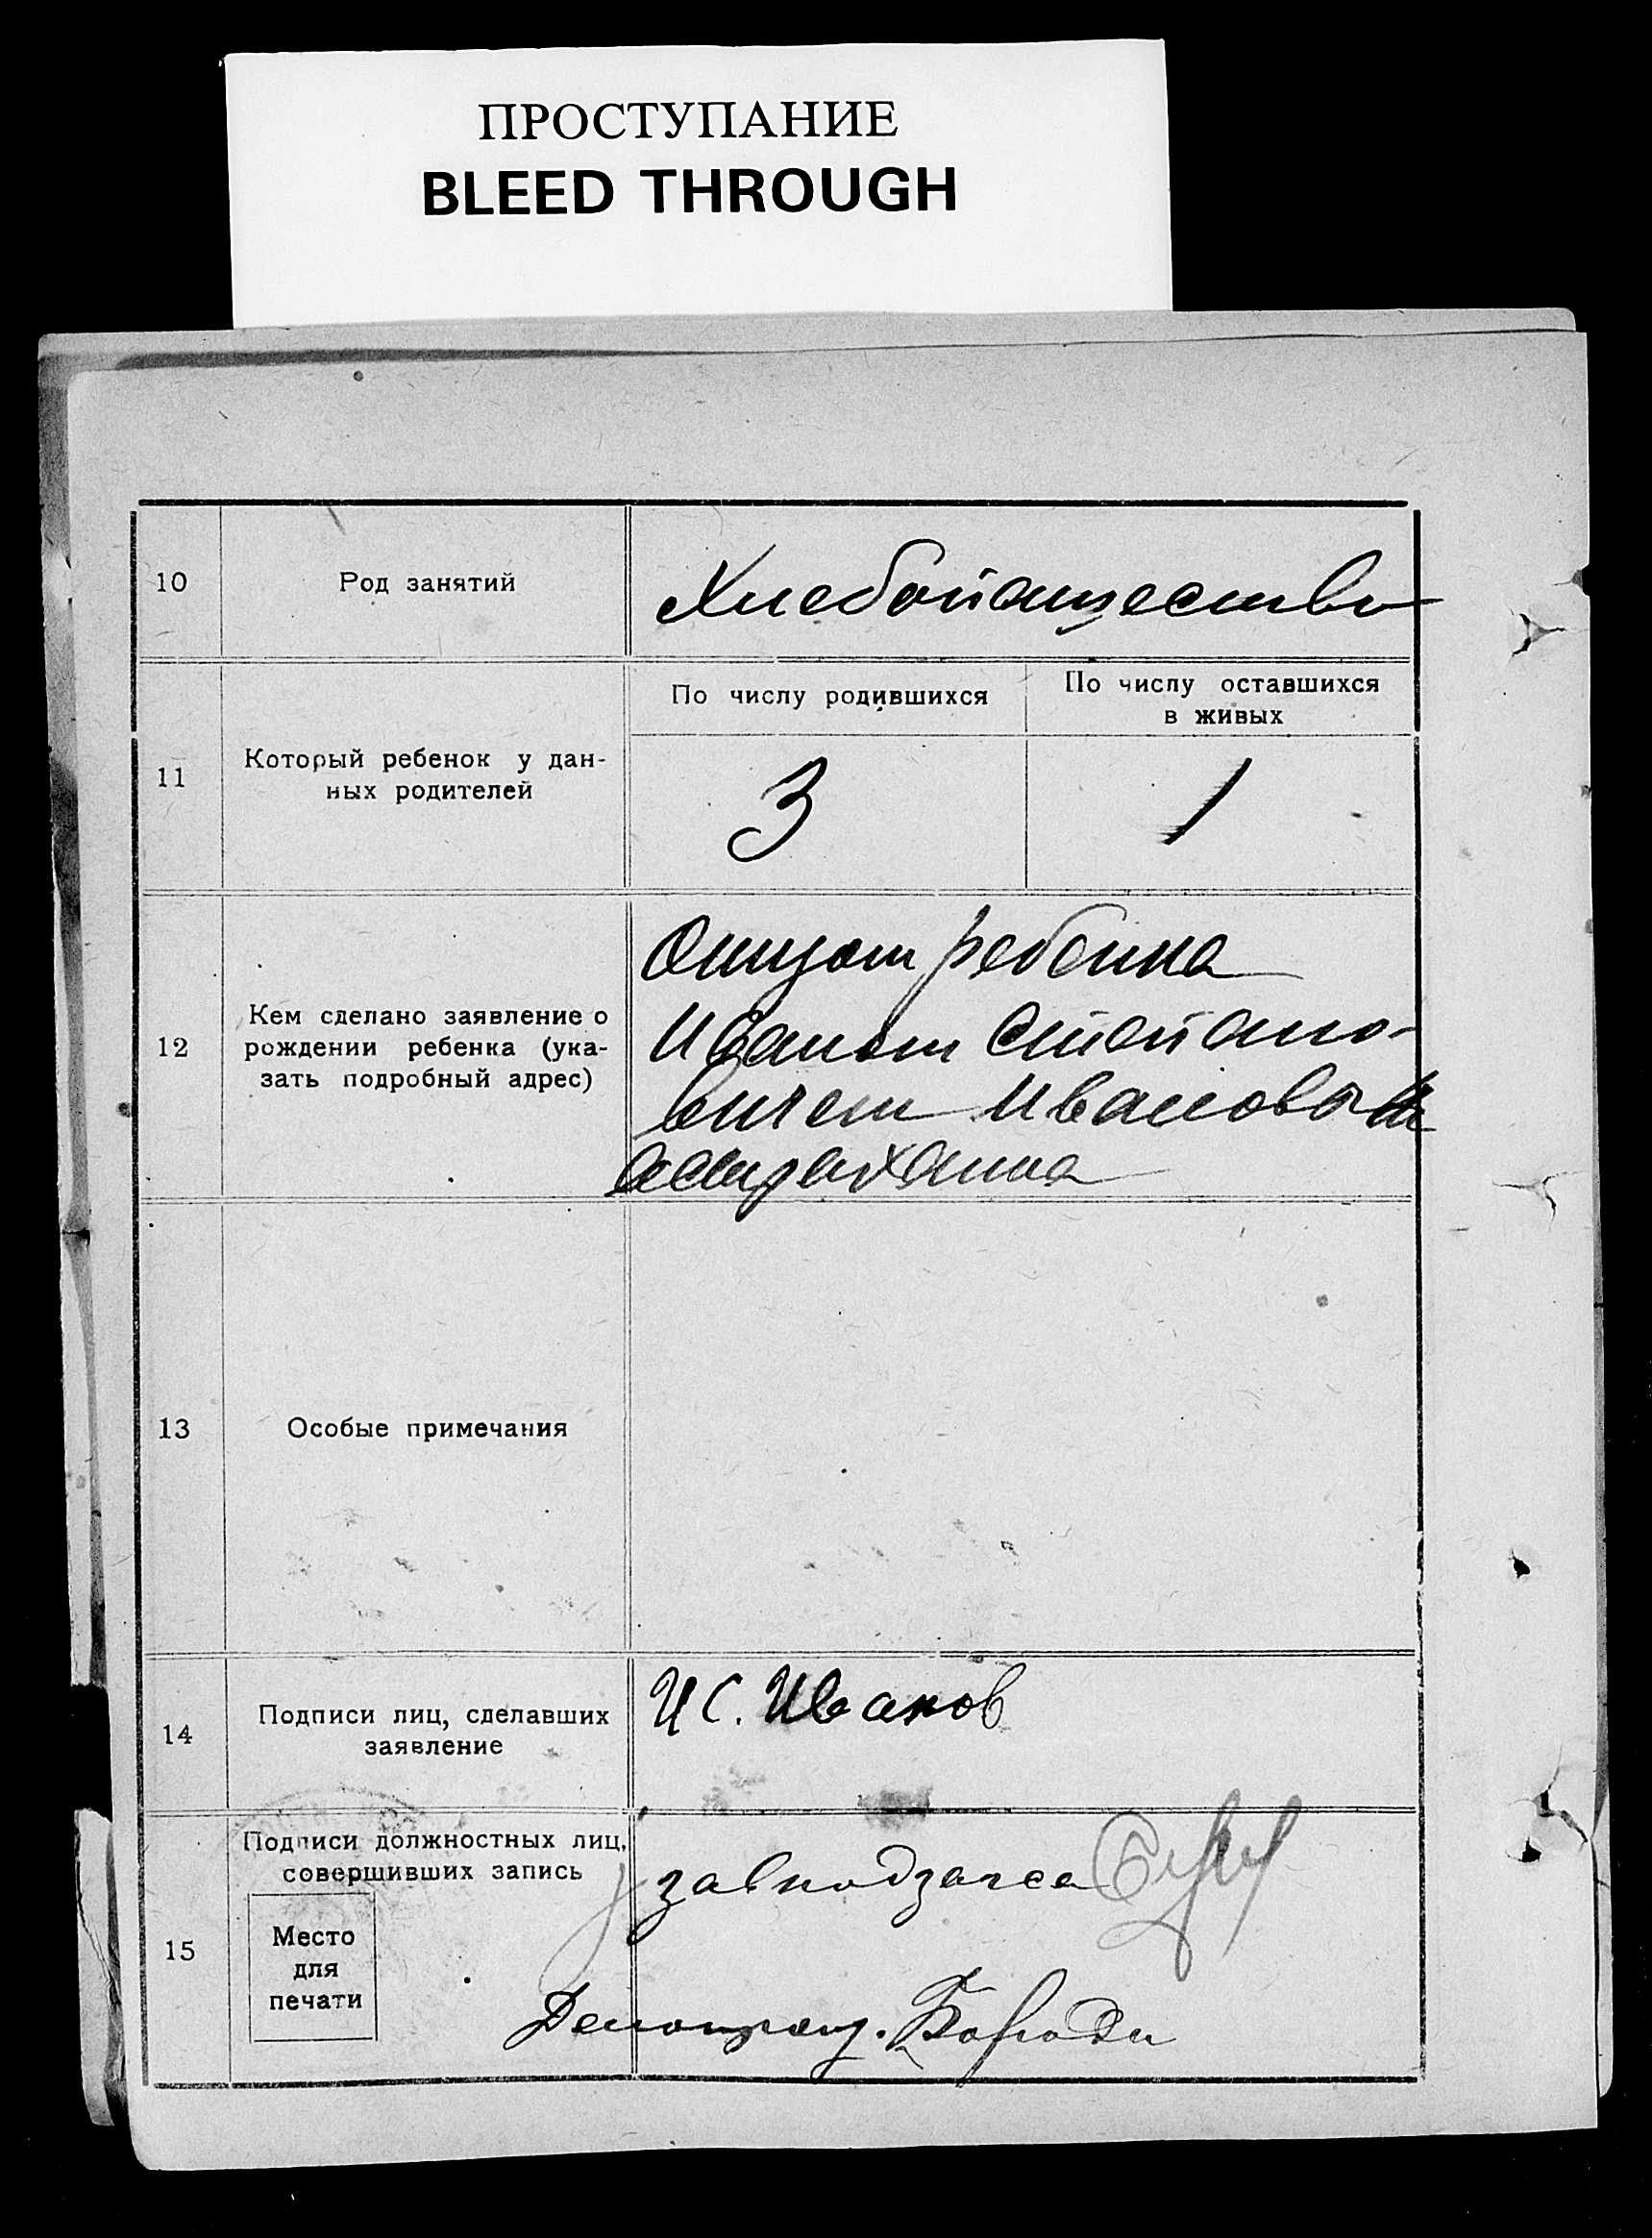 ПРОСТУПАНИЕ
BLEED THROUGH
10
Род занятий
Хлебопашество
11
Который ребенок у дан-
ных родителей
По числу родившихся
По числу оставшихся
в живых
3
1
12
Кем сделано заявление о
рождении ребенка (ука-
зать подробный адрес)
Отцом ребенка
Иваном Степано-
вичем Ивановым
13
Особые примечания
14
Подписи лиц, сделавших
заявление
И С. Иванов
15
Подписи должностных лиц,
совершивших запись
Место
для
печати
завподзагса